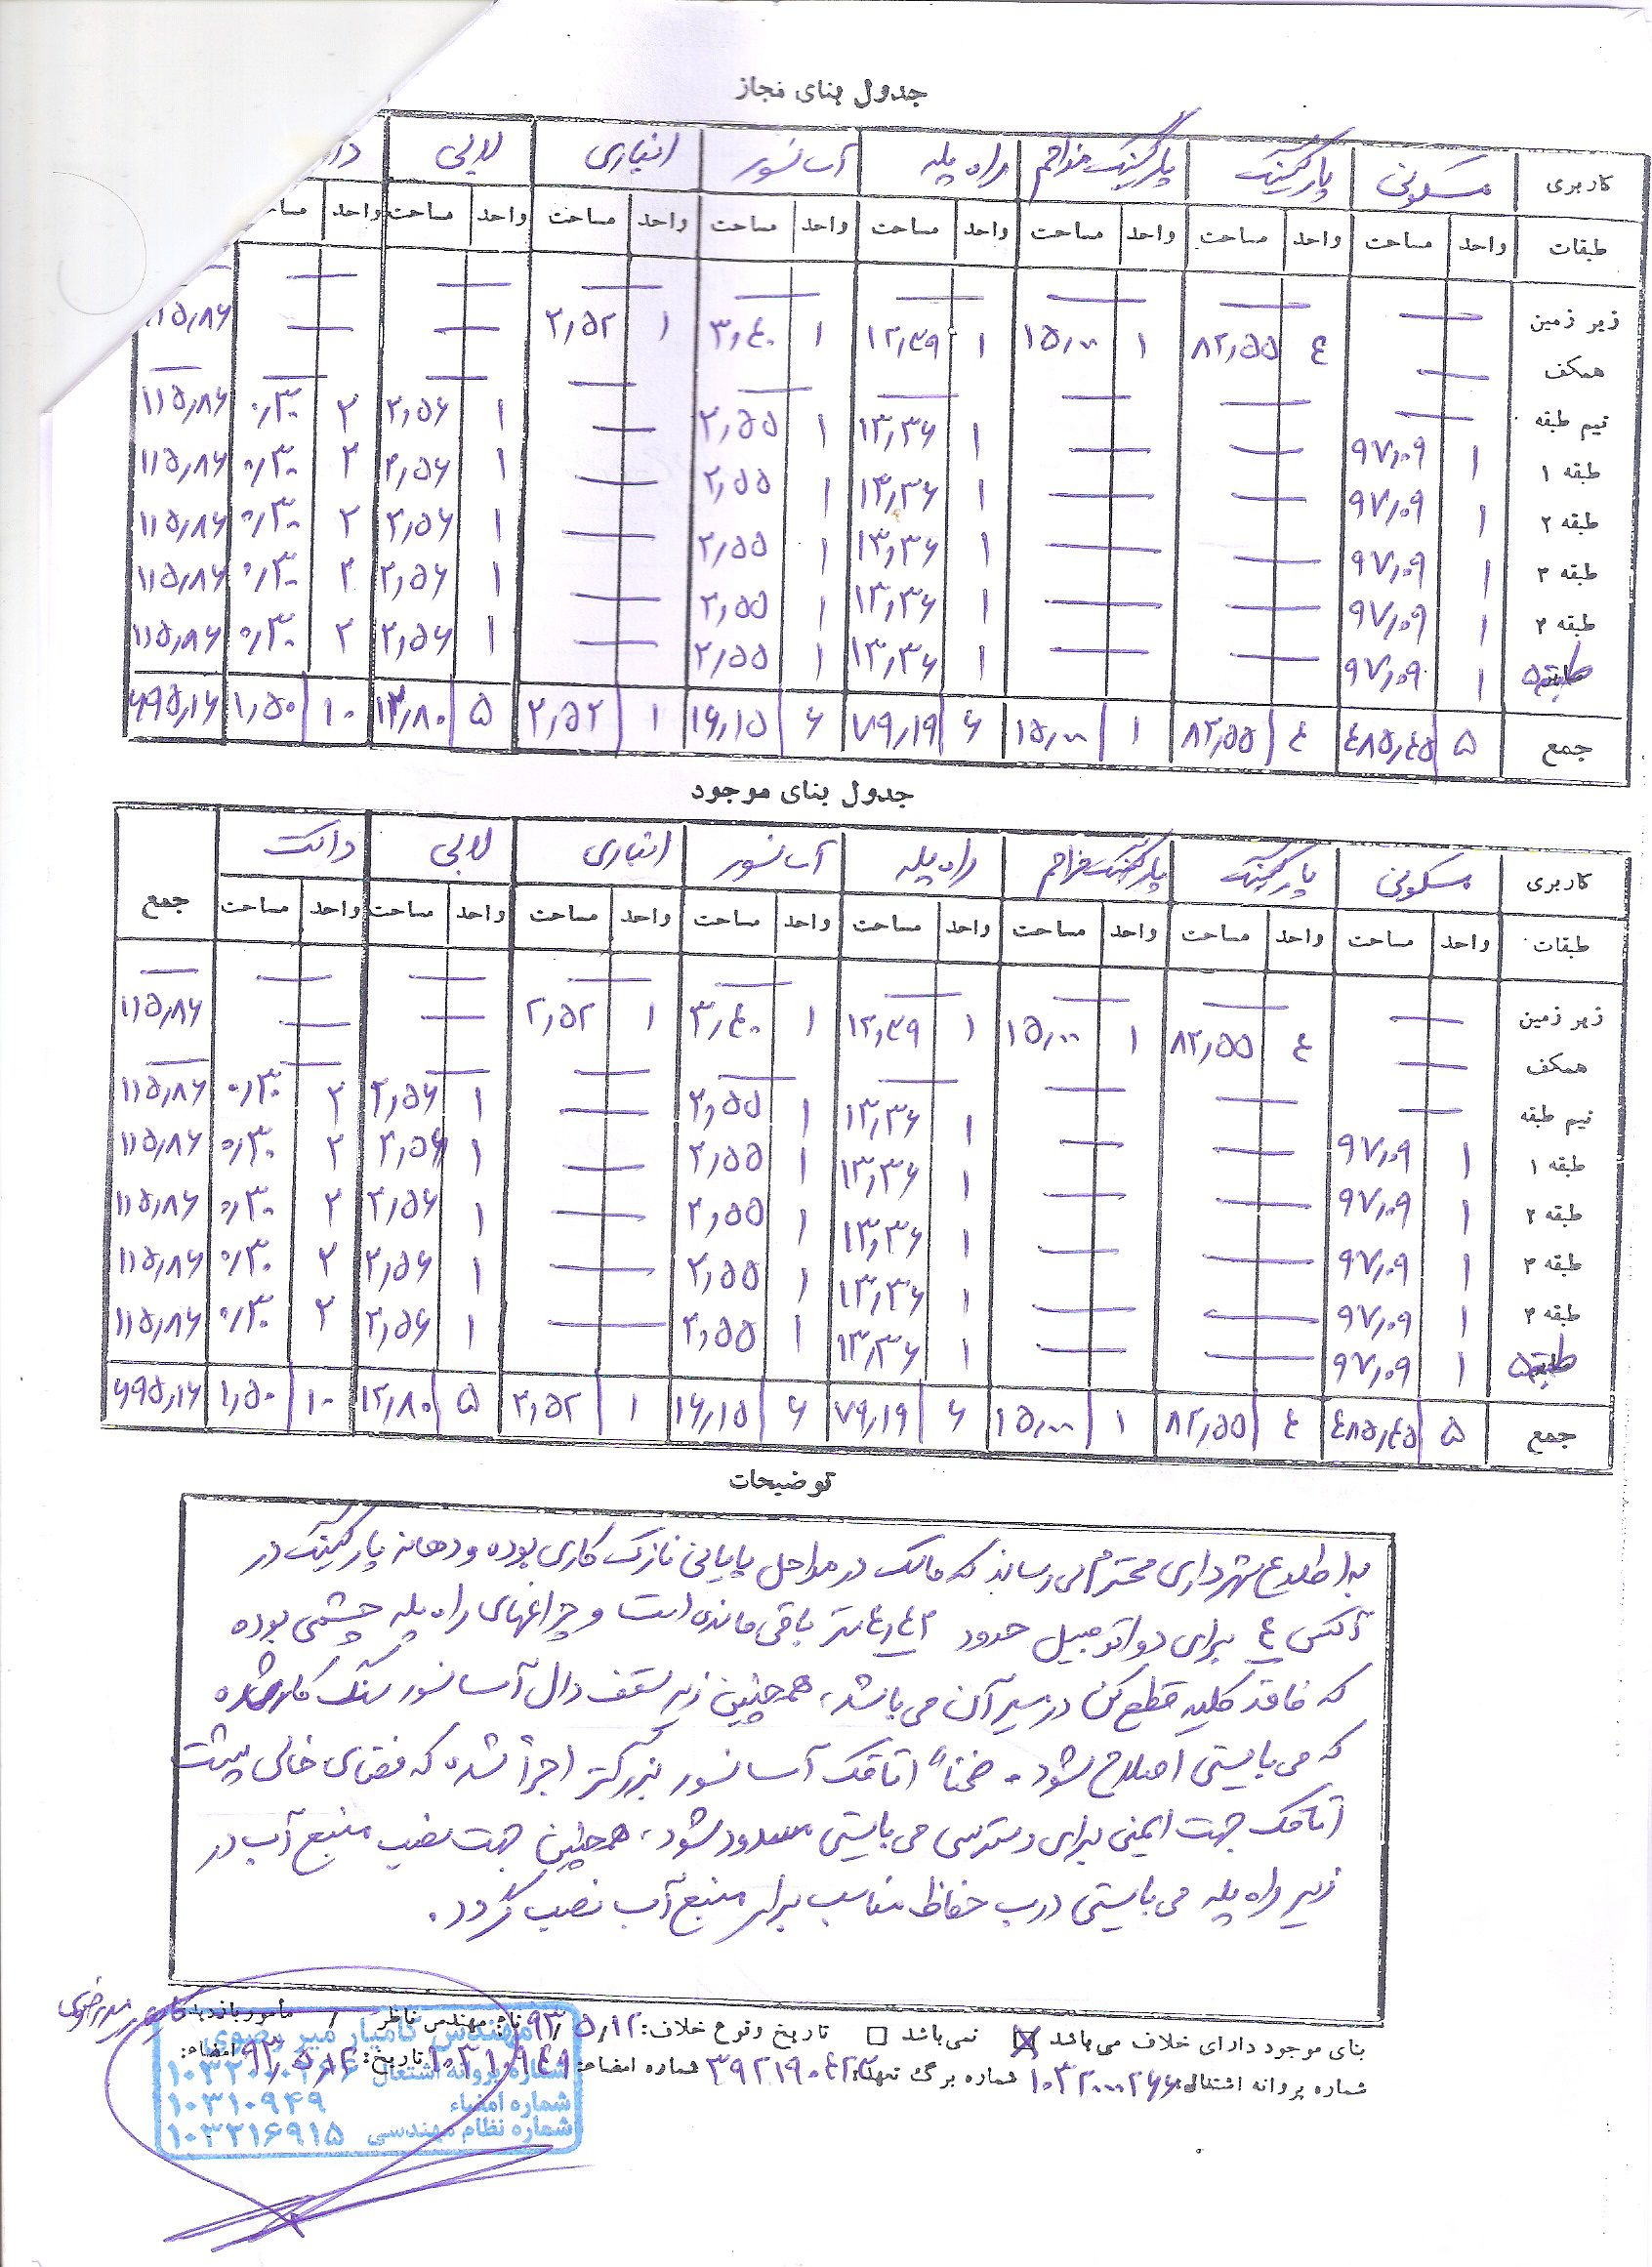 جدول بنای مجاز
کاربری مسکونی پارکینگ پارکینگ مزاحم راه پله آسانسور انباری لابی
طبقات واحد مساحت واحد مساحت واحد مساحت واحد مساحت واحد مساحت واحد مساحت واحد مساحت واحد
زیر زمین — — — — — — — — —
همکف — ۴ ۸۲٫۵۵ ۱ ۱۵٫۰۰ ۱ ۱۲٫۳۹ ۱ ۳٫۴۰ ۱ ۲٫۵۲ — — ۱۱۵٫۸۶
نیم طبقه — — — — — — — — —
طبقه ۱ ۱ ۹۷٫۰۹ — — ۱ ۱۳٫۳۶ ۱ ۲٫۵۵ — ۱ ۲٫۵۶ ۲ ۰٫۳۰ ۱۱۵٫۸۶
طبقه ۲ ۱ ۹۷٫۰۹ — — ۱ ۱۳٫۳۶ ۱ ۲٫۵۵ — ۱ ۲٫۵۶ ۲ ۰٫۳۰ ۱۱۵٫۸۶
طبقه ۳ ۱ ۹۷٫۰۹ — — ۱ ۱۳٫۳۶ ۱ ۲٫۵۵ — ۱ ۲٫۵۶ ۲ ۰٫۳۰ ۱۱۵٫۸۶
طبقه ۴ ۱ ۹۷٫۰۹ — — ۱ ۱۳٫۳۶ ۱ ۲٫۵۵ — ۱ ۲٫۵۶ ۲ ۰٫۳۰ ۱۱۵٫۸۶
طبقه ۵ ۱ ۹۷٫۰۹ — — ۱ ۱۳٫۳۶ ۱ ۲٫۵۵ — ۱ ۲٫۵۶ ۲ ۰٫۳۰ ۱۱۵٫۸۶
جمع ۵ ۴۸۵٫۴۵ ۴ ۸۲٫۵۵ ۱ ۱۵٫۰۰ ۶ ۷۹٫۱۹ ۶ ۱۶٫۱۵ ۱ ۲٫۵۲ ۵ ۱۲٫۸۰ ۱۰ ۱٫۵۰ ۶۹۵٫۱۶
جدول بنای موجود
کاربری مسکونی پارکینگ پارکینگ مزاحم راه پله آسانسور انباری لابی داکت جمع
طبقات واحد مساحت واحد مساحت واحد مساحت واحد مساحت واحد مساحت واحد مساحت واحد مساحت واحد مساحت
زیر زمین — — — — — — — — —
همکف — ۴ ۸۲٫۵۵ ۱ ۱۵٫۰۰ ۱ ۱۲٫۳۹ ۱ ۳٫۴۰ ۱ ۲٫۵۲ — — ۱۱۵٫۸۶
نیم طبقه — — — — — — — — —
طبقه ۱ ۱ ۹۷٫۰۹ — — ۱ ۱۳٫۳۶ ۱ ۲٫۵۵ — ۱ ۲٫۵۶ ۲ ۰٫۳۰ ۱۱۵٫۸۶
طبقه ۲ ۱ ۹۷٫۰۹ — — ۱ ۱۳٫۳۶ ۱ ۲٫۵۵ — ۱ ۲٫۵۶ ۲ ۰٫۳۰ ۱۱۵٫۸۶
طبقه ۳ ۱ ۹۷٫۰۹ — — ۱ ۱۳٫۳۶ ۱ ۲٫۵۵ — ۱ ۲٫۵۶ ۲ ۰٫۳۰ ۱۱۵٫۸۶
طبقه ۴ ۱ ۹۷٫۰۹ — — ۱ ۱۳٫۳۶ ۱ ۲٫۵۵ — ۱ ۲٫۵۶ ۲ ۰٫۳۰ ۱۱۵٫۸۶
طبقه ۵ ۱ ۹۷٫۰۹ — — ۱ ۱۳٫۳۶ ۱ ۲٫۵۵ — ۱ ۲٫۵۶ ۲ ۰٫۳۰ ۱۱۵٫۸۶
جمع ۵ ۴۸۵٫۴۵ ۴ ۸۲٫۵۵ ۱ ۱۵٫۰۰ ۶ ۷۹٫۱۹ ۶ ۱۶٫۱۵ ۱ ۲٫۵۲ ۵ ۱۲٫۸۰ ۱۰ ۱٫۵۰ ۶۹۵٫۱۶
توضیحات
به اطلاع شهرداری محترم می رساند که مالک در مراحل پایانی نازک کاری بوده و دهانه پارکینگ در
آکس ۴ برای دو اتومبیل حدود ۴٫۴۲ متر باقی مانده است و چراغهای راه پله چشمی بوده
که فاقد کلید قطع کن در مسیر آن می باشد، همچنین زیر سقف دال آسانسور سنگ کار شده
که می بایستی اصلاح شود. ضمناً اتاقک آسانسور بزرگتر اجرا شده که فضای خالی پشت
اتاقک جهت ایمنی برای دسترسی می بایستی مسدود شود، همچنین جهت نصب منبع آب در
زیر راه پله می بایستی درب حفاظ مناسب برای منبع آب نصب گردد.
بنای موجود دارای خلاف می باشد نمی باشد تاریخ وقوع خلاف: ۹۳٫۵٫۱۲ نام مهندس ناظر
شماره پروانه اشتغال: ۱۰۳۲۰۰۰۲۶۶ شماره برگ تعهد: شماره امضاء: ۱۰۳۱۰۹۴۹ تاریخ: ۹۳٫۵٫۱۲ امضاء:
مهندس کامیار میر رضوی
شماره پروانه اشتغال ۱۰۳۲۰۰۰۲۶۶
شماره امضاء ۱۰۳۱۰۹۴۹
شماره نظام مهندسی ۱۰۳۲۱۶۹۱۵